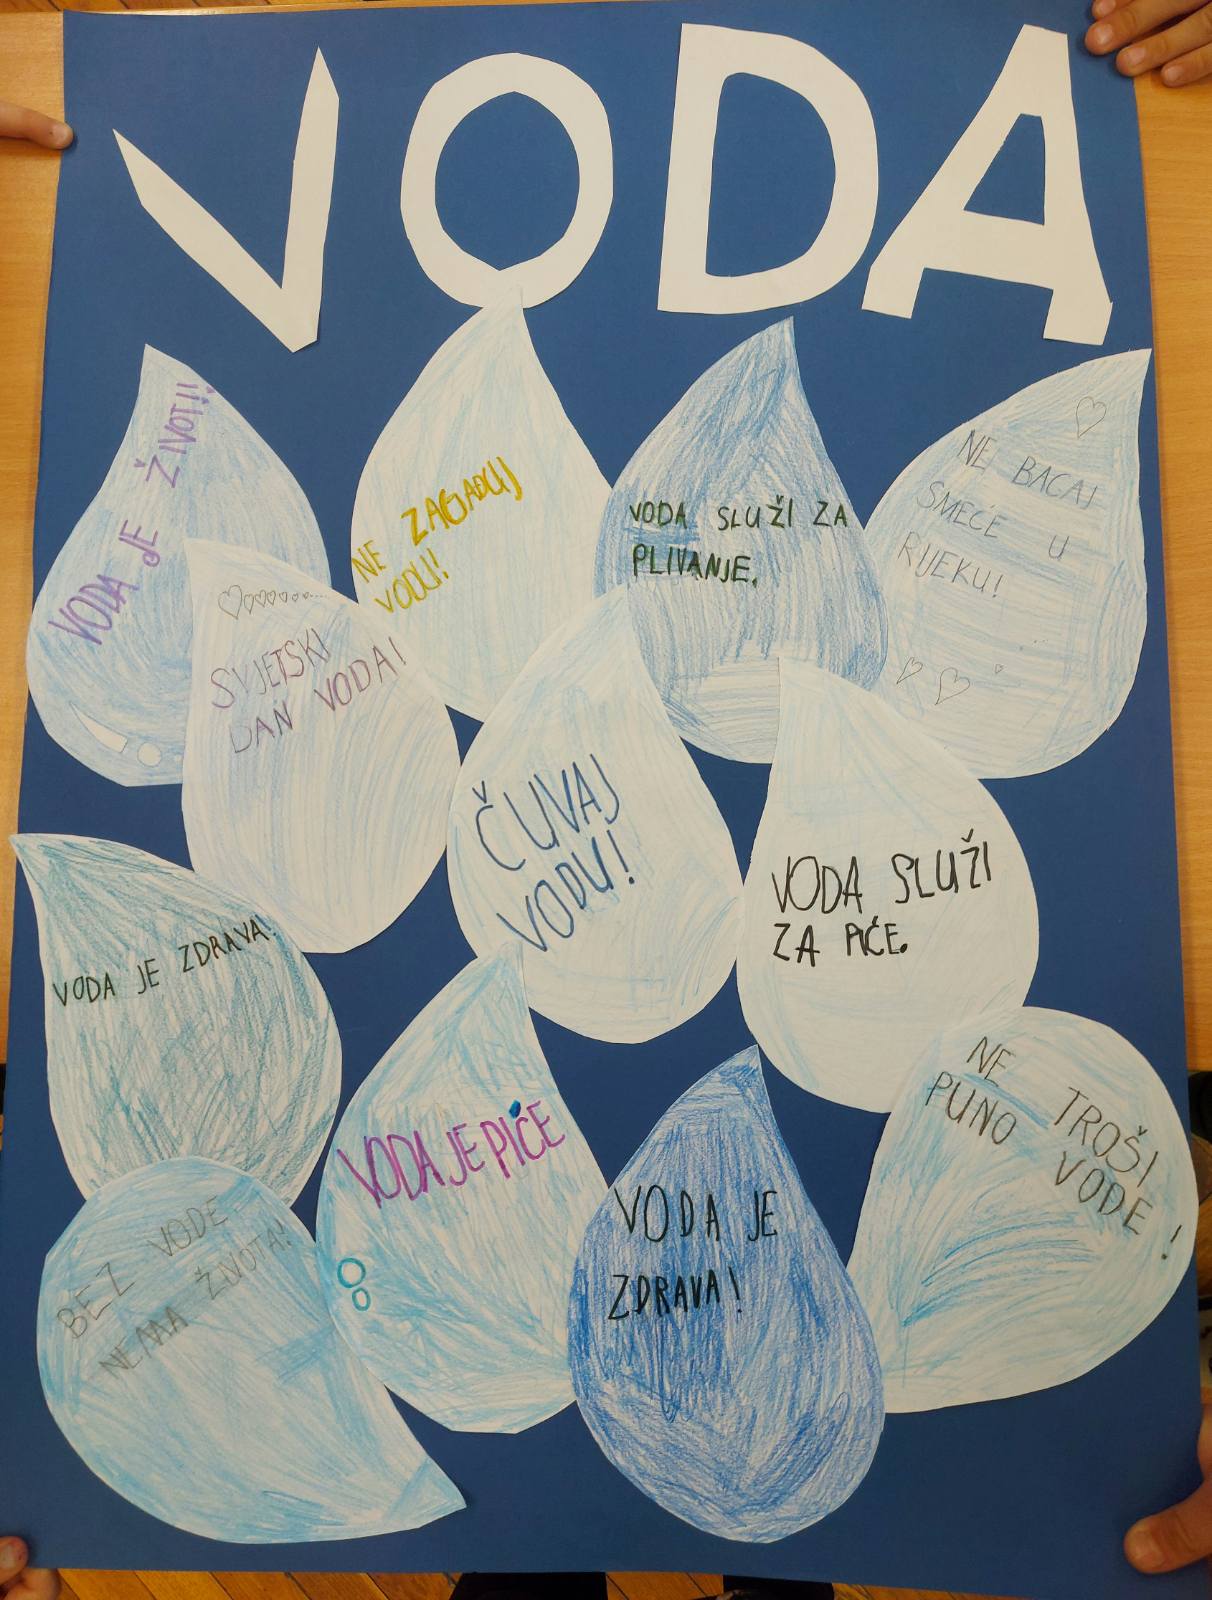 VODA
VODA JE ŽIVOT!!
NE ZAGAĐUJ
VODU!
VODA SLUŽI ZA
PLIVANJE.
NE BACAJ
SMEĆE U
RIJEKU!
SVJETSKI
DAN VODA!
ČUVAJ
VODU!
VODA SLUŽI
ZA PIĆE.
VODA JE ZDRAVA!
VODA JE PIĆE
VODA JE
ZDRAVA!
NE TROŠI
PUNO VODE!
BEZ VODE
NEMA ŽIVOTA!